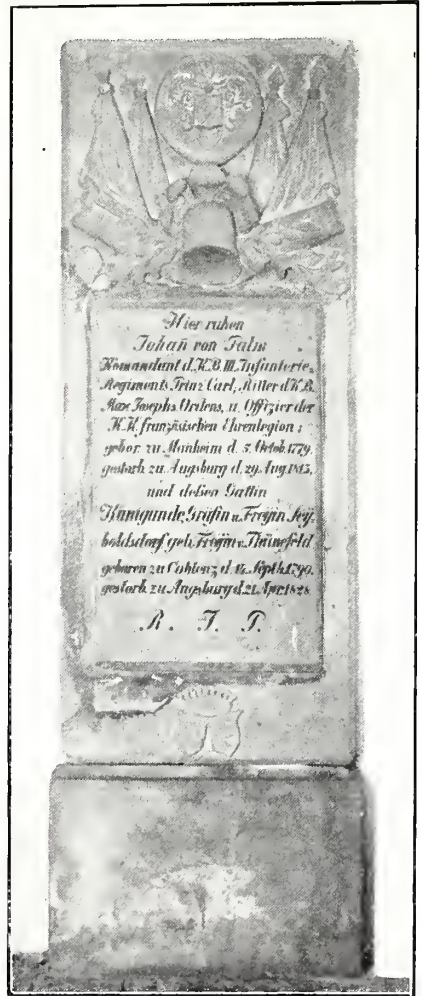 Hier ruhen
Johañ von Palm
Komandant d. K. B. III. Infanterie-
Regiments Prinz Carl, Ritter d. K. B.
Max Josephs Ordens, u. Offizier der
K. K. französischen Ehrenlegion;
gebor. zu Manheim d. 5. Octob. 1779,
gestorb. zu Augsburg d. 29. Aug. 1813,
und deßen Gattin
Kunigunde, Gräfin u. Freyin Sey-
boldsdorf geb. Freyin v. Thünefeld
geboren zu Coblenz d. 14. Septb. 1790,
gestorb. zu Augsburg d. 21. Apr. 1828.
R. I. P.